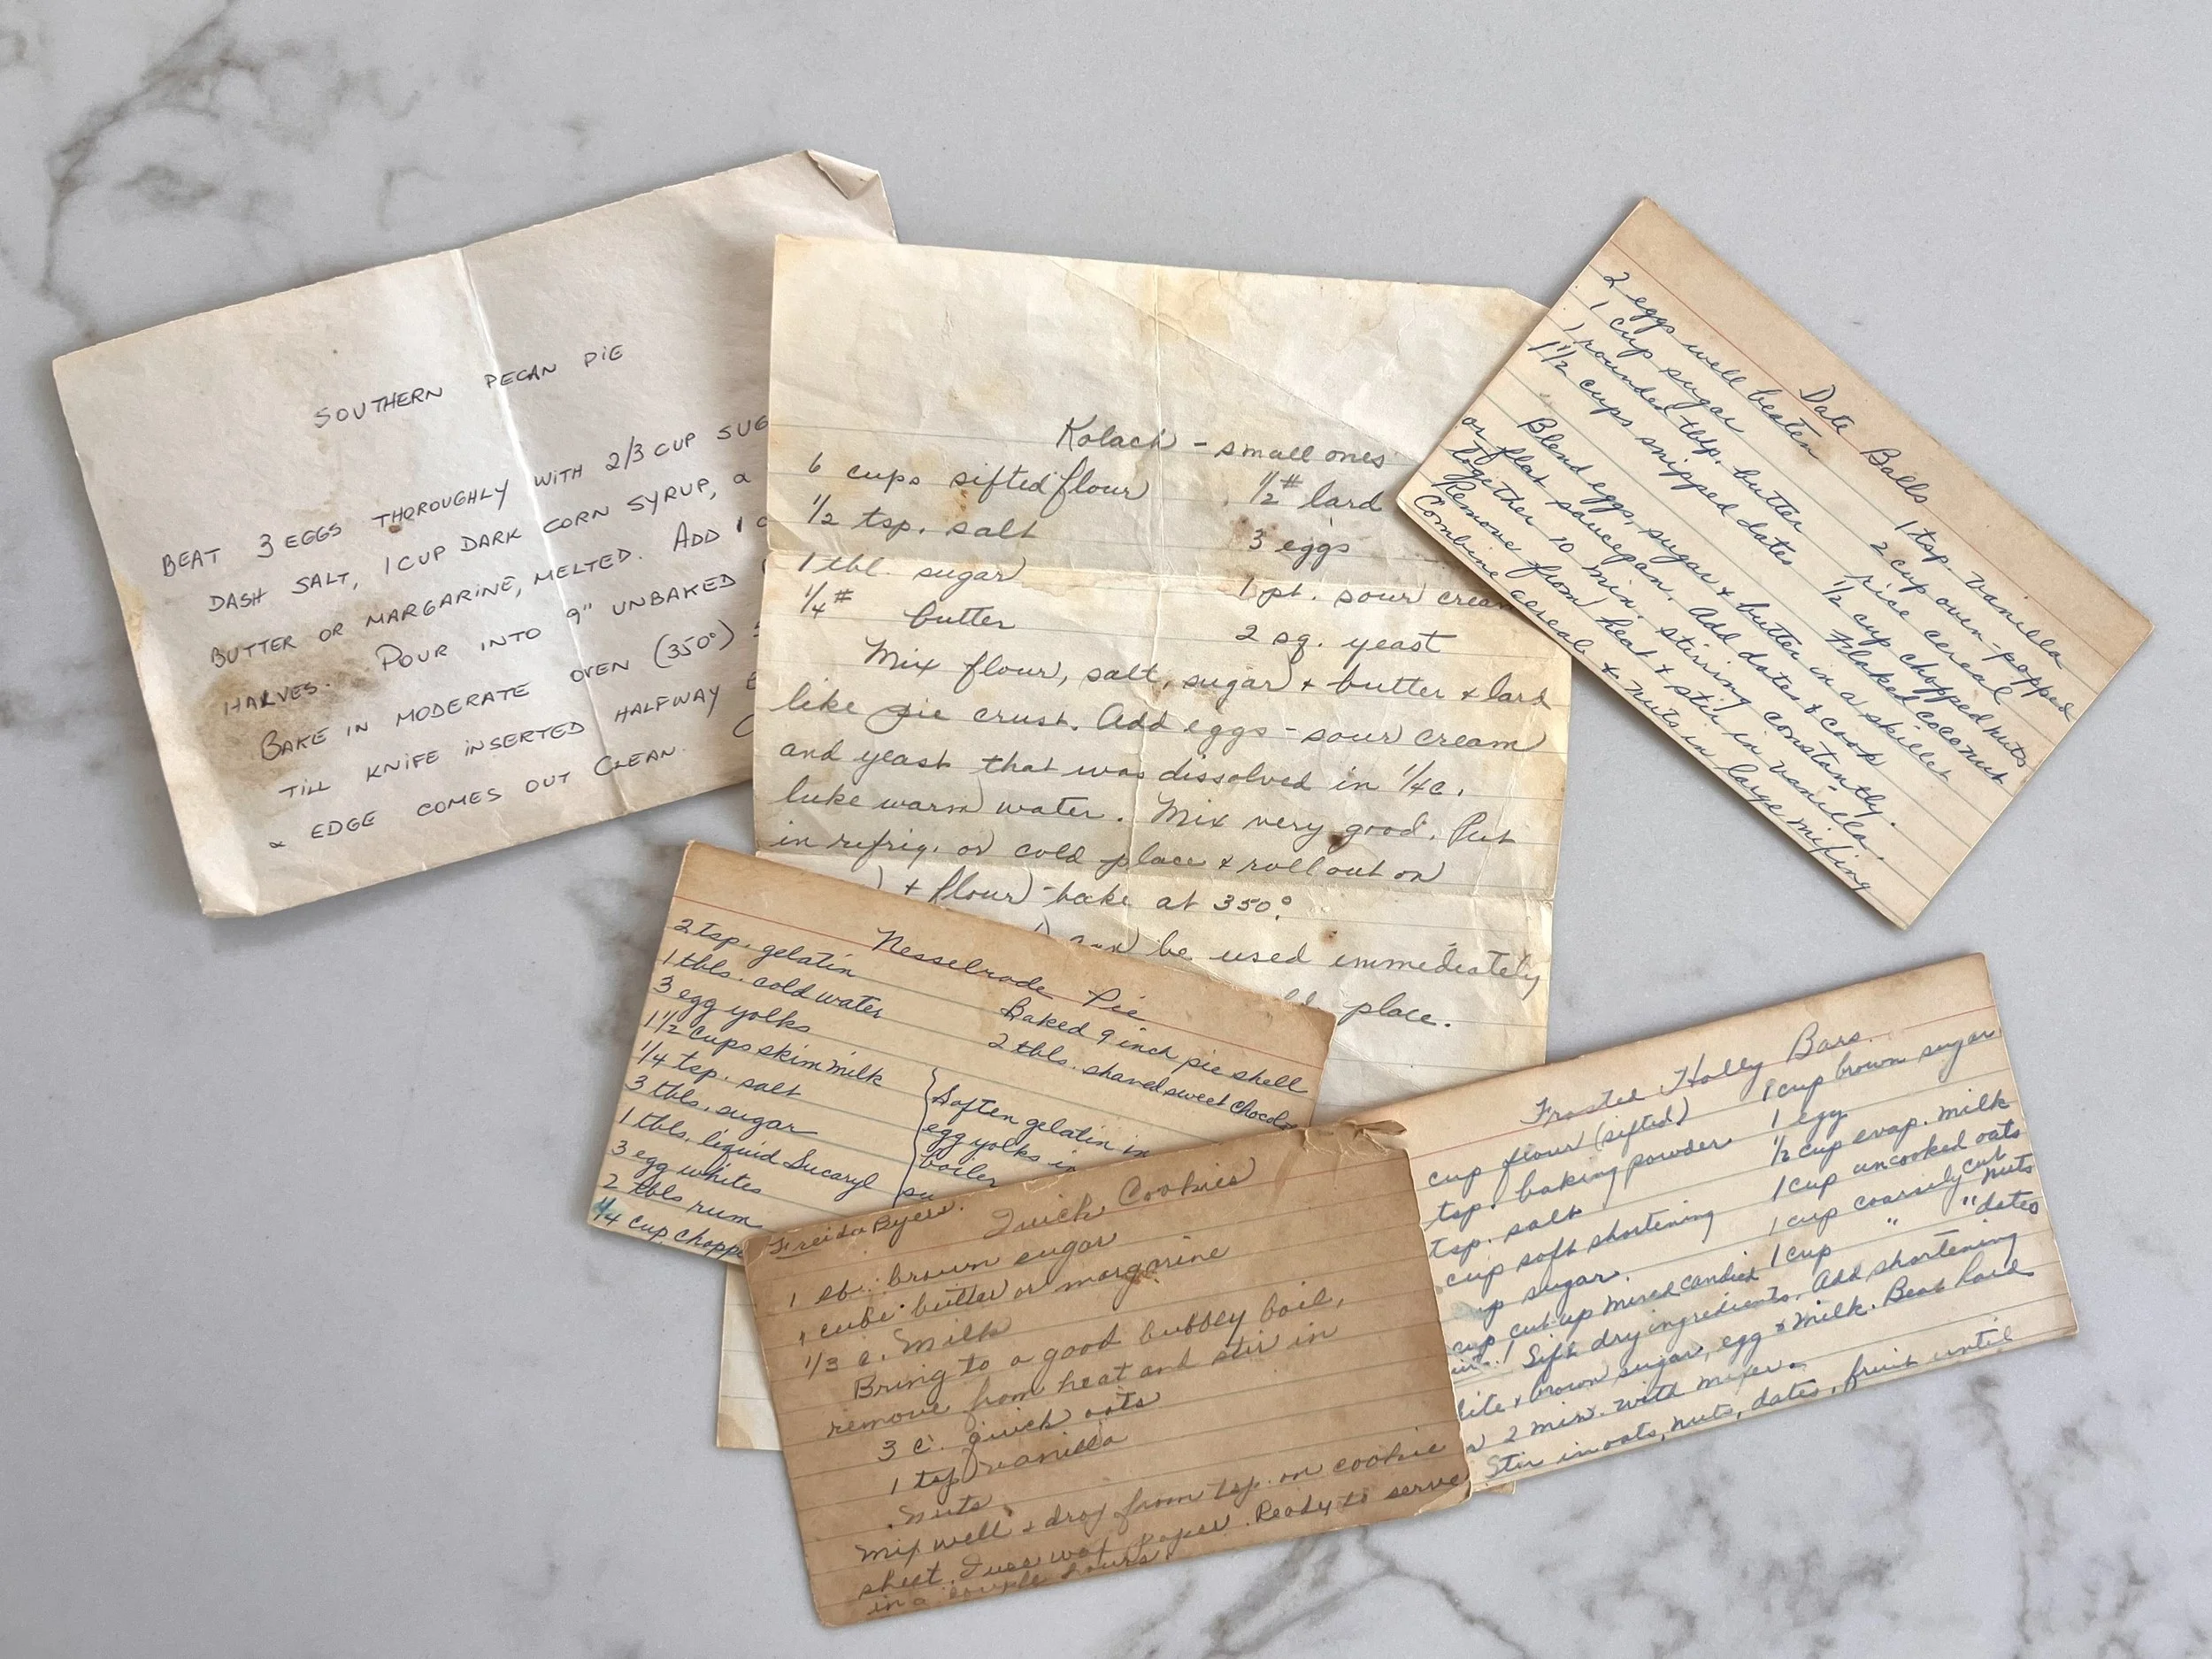 SOUTHERN PECAN PIE
BEAT 3 EGGS THOROUGHLY WITH 2/3 CUP SUG
DASH SALT, 1 CUP DARK CORN SYRUP, a
BUTTER OR MARGARINE, MELTED. ADD 1 C
HALVES. POUR INTO 9" UNBAKED
BAKE IN MODERATE OVEN (350°)
TILL KNIFE INSERTED HALFWAY
& EDGE COMES OUT CLEAN.
Kolach - small ones
6 cups sifted flour 1/2# lard
1/2 tsp. salt 3 eggs
1 tbl. sugar 1 pt. sour cream
1/4# butter 2 sq. yeast
Mix flour, salt, sugar + butter & lard
like pie crust. Add eggs - sour cream
and yeast that was dissolved in 1/4 c.
luke warm water. Mix very good. Put
in refrig. or cold place & roll out on
+ flour - bake at 350°.
can be used immediately
place.
Date Balls
2 eggs well beaten 1 tsp. vanilla
1 cup sugar 2 cup oven-popped
1 rounded tbsp. butter rice cereal
1 1/2 cups snipped dates 1/2 cup chopped nuts
Flaked coconut
Blend eggs, sugar & butter in a skillet
or flat saucepan. Add dates & cook
together 10 min. stirring constantly.
Remove from heat & stir in vanilla.
Combine cereal & nuts in large mixing
Nesselrode Pie
2 tsp. gelatin Baked 9 inch pie shell
1 tbls. cold water 2 tbls. shaved sweet chocol
3 egg yolks
1 1/2 cups skim milk
1/4 tsp. salt Soften gelatin in
3 tbls. sugar egg yolks in
1 tbls. liquid Sucaryl boiler
3 egg whites su
2 tbls rum
1/4 cup chopp
Freida Byers. Quick Cookies
1 lb. brown sugar
1 cube butter or margarine
1/3 c. Milk
Bring to a good bubbly boil,
remove from heat and stir in
3 c. quick oats
1 tsp vanilla
Nuts
Mix well & drop from tsp. on cookie
sheet. I use wax paper. Ready to serve
in a couple hours.
Frosted Holly Bars
cup flour (sifted) 1 cup brown sugar
tsp. baking powder 1 egg
tsp. salt 1/2 cup evap. milk
cup soft shortening 1 cup uncooked oats
up sugar. 1 cup coarsely cut nuts
cup cut up mixed candied 1 cup " " dates
Sift dry ingredients. Add shortening
brown sugar, egg & milk. Beat hard
2 min. with mixer.
Stir in oats, nuts, dates, fruit until